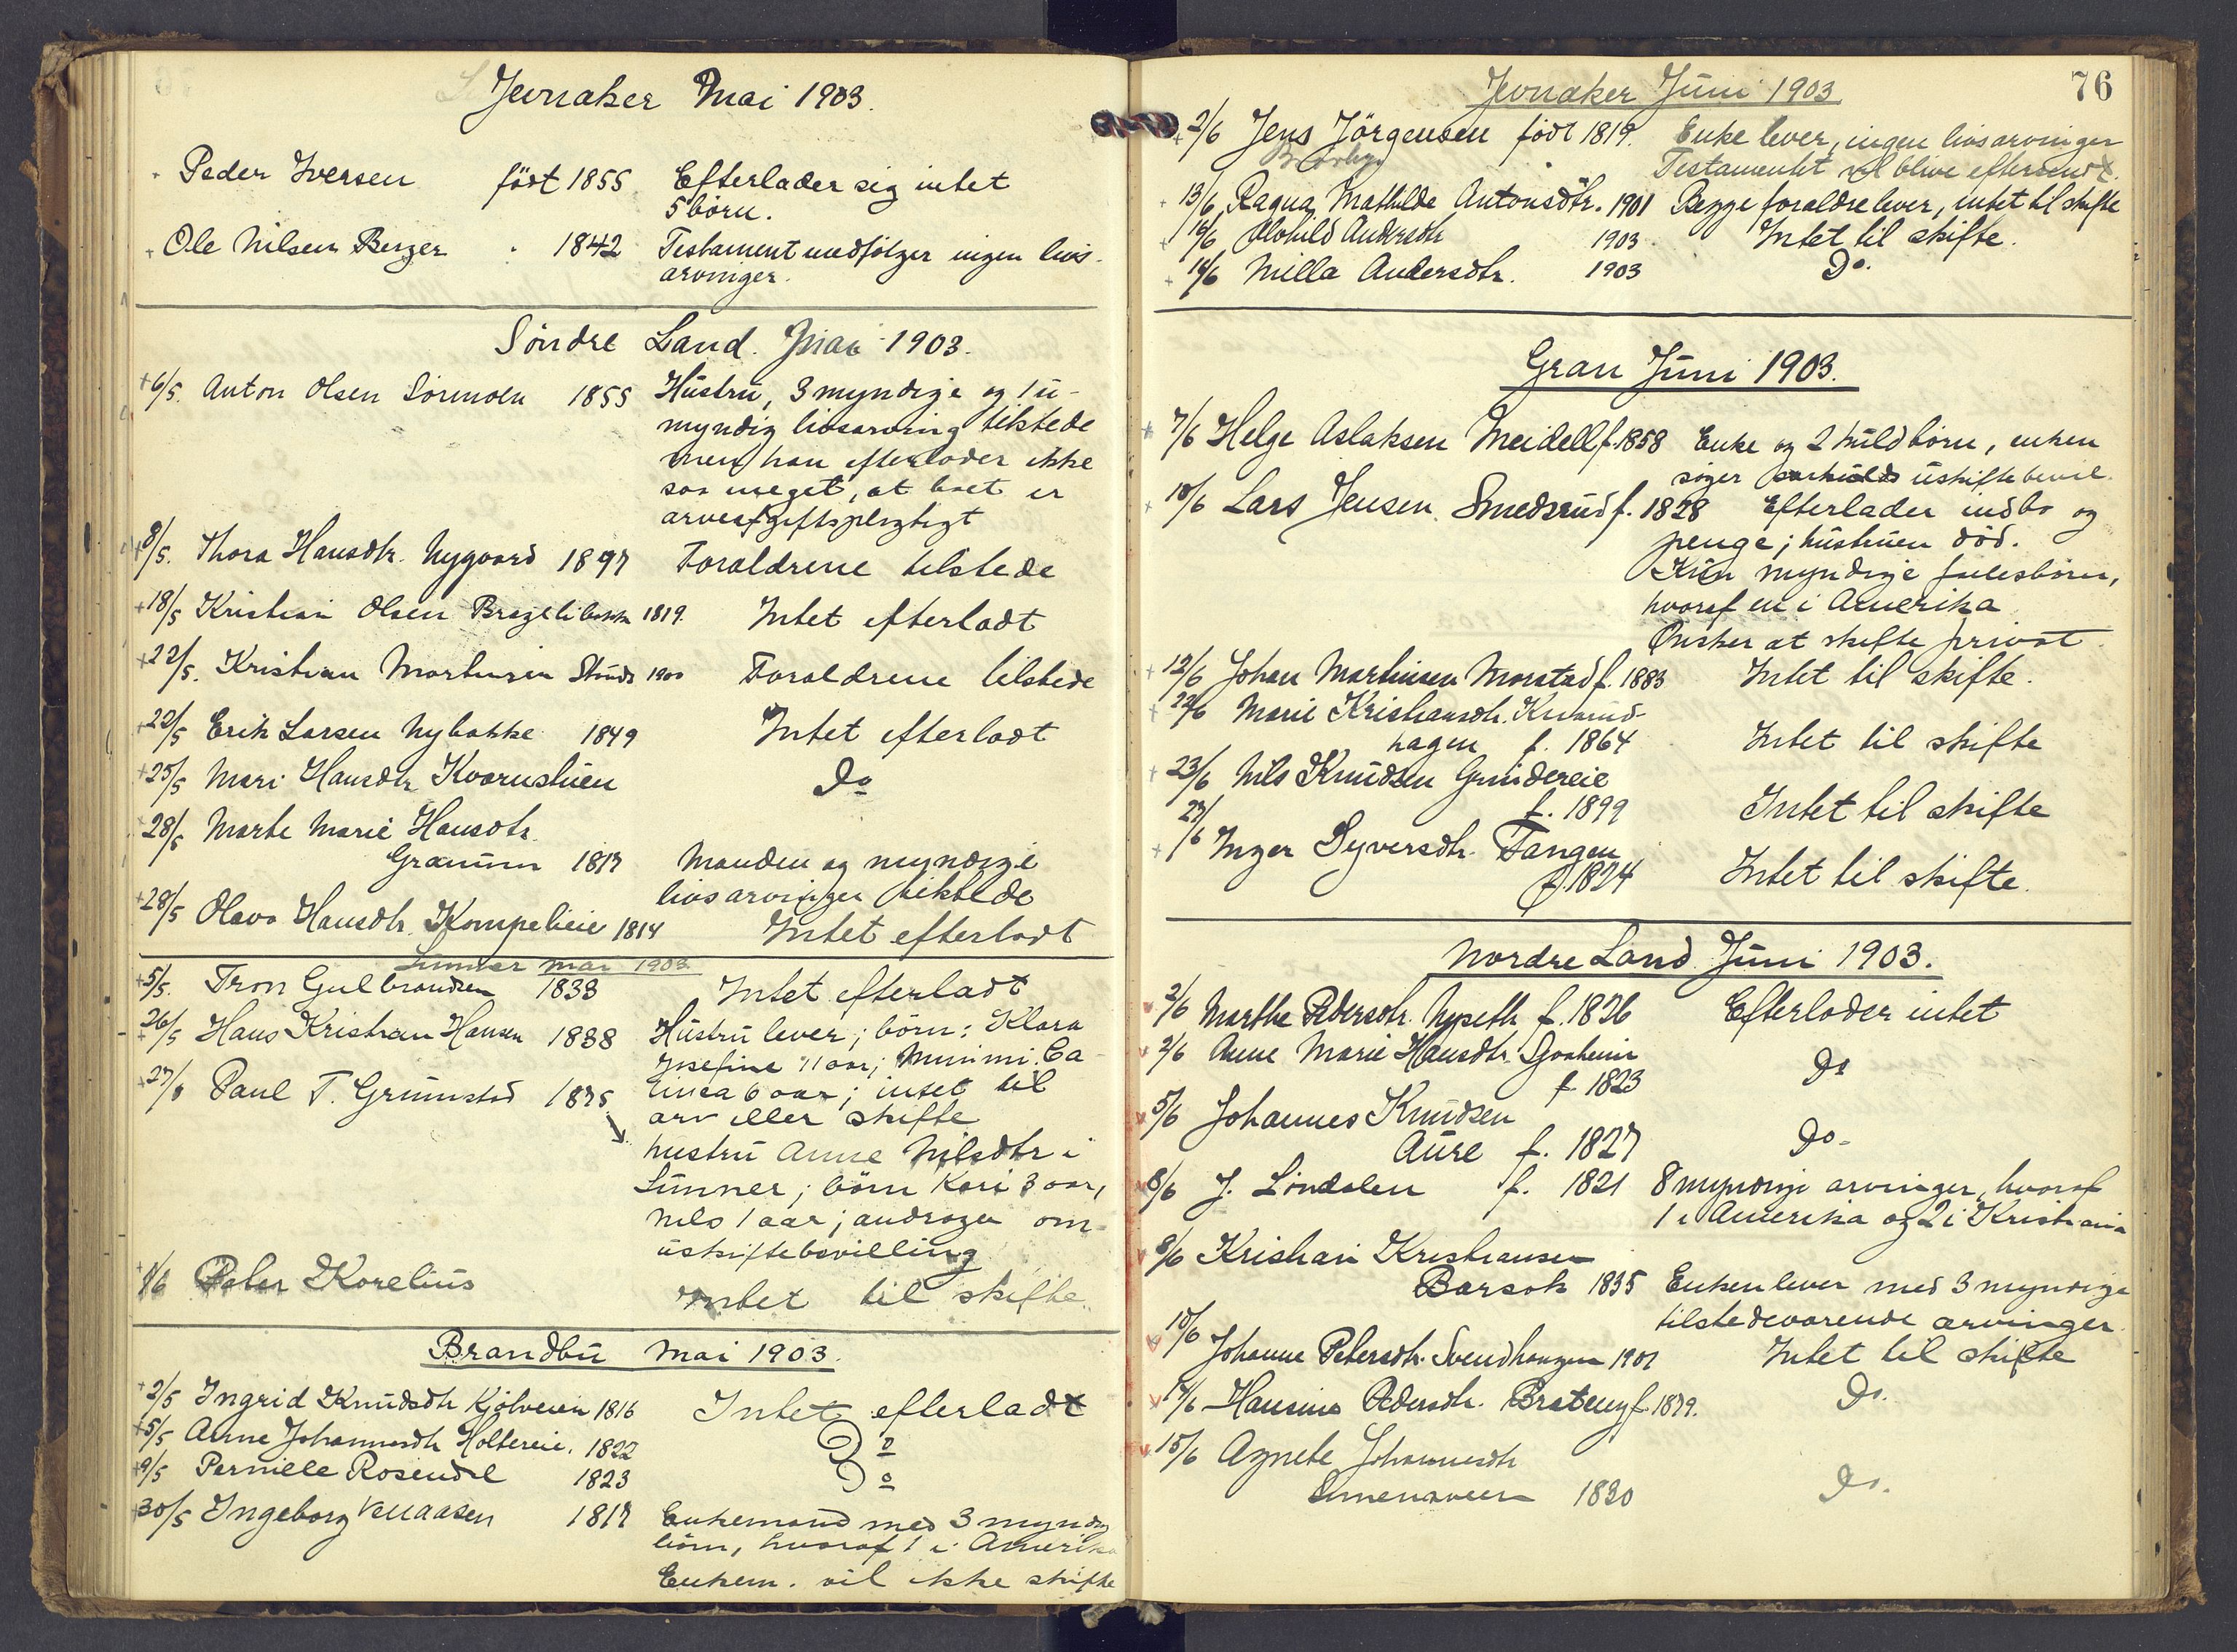 Jevnaker Mai 1903.
Peder Iversen født 1855 Efterlader sig intet
5 børn.
Ole Nilsen Berger " 1842 Testament medfölger ingen livs-
arvinger.
Söndre Land. Mai 1903.
6/5. Anton Olsen 1855 Hüstrü, 3 myndige og 1 ü-
myndig livsarving tilstede
men han efterlader ikke
saa meget, at boet er
arveafgiftspligtigt
8/5. Thora Hansdtr. Nygaard 1897 Forældrene tilstede
18/5 Kristian Olsen 1819. Intet efterladt
22/5. Kristian Martinsen 1900 Forældrene tilstede
22/5 Erik Larsen Nybakke 1849 Intet efterladt
25/5 Mari Hansdtr. Kvarnstüen Do
28/5 Marte Marie Hansdtr.
Granüm 1817 Manden og myndige
livsarvinger tilstede
28/5 Olava Hansdtr. Kompelieie 1814 Intet efterladt
Lünner Mai 1903.
5/5. Tron Gulbrandsen 1833 Intet efterladt
26/5 Hans Kristian Hansen 1838 Hüstrü lever; börn: Klara
Josefine 11 aar; Minimi Ca-
linea 6 aar; intet til
27/5 Paul T. Grimstad 1875
arv eller skifte
hustrü Anne Nilsdtr i
Lünner; börn Kari 3 aar,
Nils 1 aar; andrager om
üskiftebevilling
1/6 Peter Korelius Intet til skifte.
Brandbü Mai 1903.
2/5 Ingrid Knüdsdtr Kjölveien 1816 Intet efterladt
5/5 Anne Johannesdtr Holtereie. 1822 Do
9/5 Pernille Rosendal 1823 Do
30/5 Ingeborg Velaasen 1817 Enkemand med 3 myndig
börn, hvoraf 1 i Amerika
Enkem. vil ikke skifte
76
Jevnaker Jüni 1903
2/6 Jens Jörgensen född 1819. Enke lever, ingen livsarvinger
Testamentet vil blive eftersendt.
13/6 Ragna Mathilde Antonsdtr. 1901 Begge foraldre lever, intet til skifte
16/6 Andersdtr 1903 Intet til skifte.
14/6 Milla Andersdtr. 1903 Do.
Gran Jüni 1903.
7/6 Helge Aslaksen Meidell f. 1858 Enke og 2 küldbörn, enken
söger üskiftebevil.
10/6 Lars Jensen Smedsrüd f. 1828 Efterlader indbo og
penge; hüstrüen död.
Kün myndige fællesbörn,
hvoraf en i Amerika
Önsker at skifte privat.
12/6 Johan Martinsen Morstad f. 1883 Intet til skifte.
22/6 Marie Kristiansdtr. Kvarüd-
hagen f. 1864 Intet til skifte
23/6 Nils Knüdsen Grindereie
f. 1899 Intet til skifte
27/6 Inger Syversdtr. Tangen
f. 1824 Intet til skifte.
Nordre Land Jüni 1903.
2/6 Marthe Pedersdtr. Nyseth f. 1826 Efterlader intet
2/6 Anne Marie Hansdtr.
f. 1823 Do
5/6 Johannes Knüdsen
Aüre f. 1827 Do.
8/6 J. Lindalen f. 1821 8 myndige arvinger, hvoraf
1 i Amerika og 2 i Kristiania
8/6 Kristian Kristiansen
Barsok 1835 Enken lever med 3 myndige
tilstedeværende arvinger.
10/6 Johanne Petersdtr. Svendhaugen 1901 Intet til skifte
17/6 Hansine Pedersdtr. Brateng f. 1879. Do.
15/6 Agnete Johannesdtr
1830 Do.